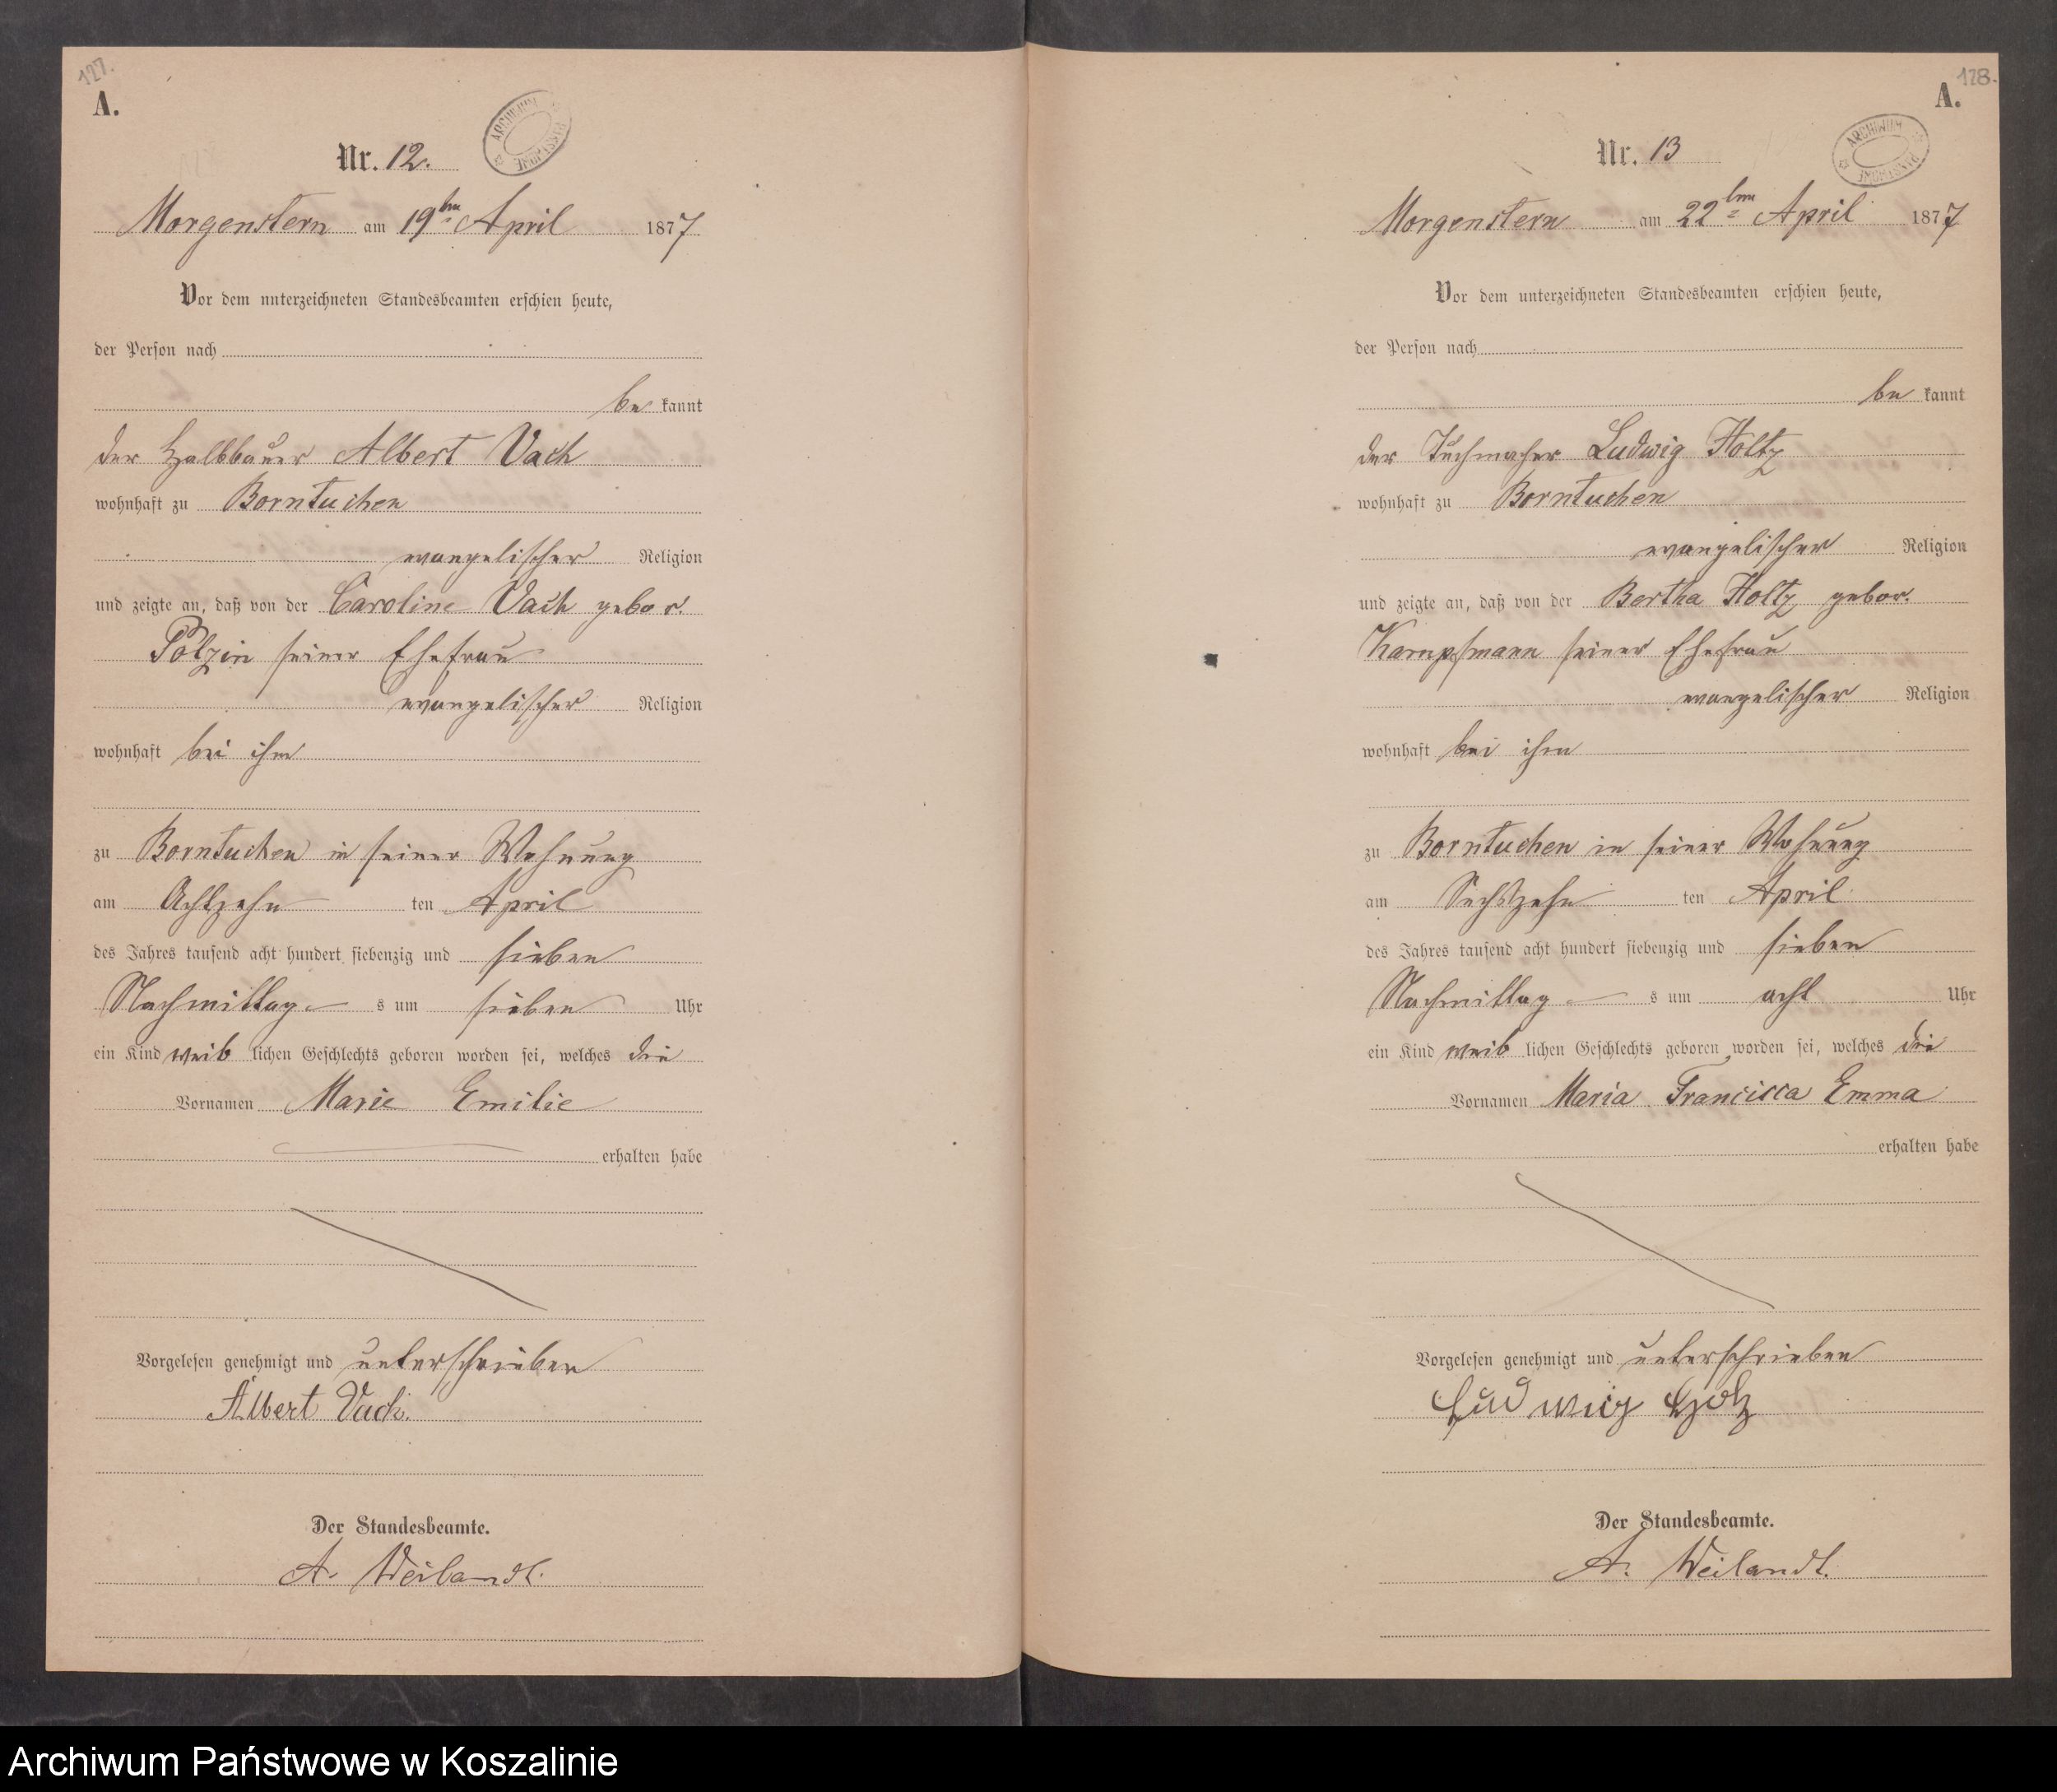 127.
A.
ARCHIWUM PAŃSTWOWE
Nr. 12.
Morgenstern am 19ten April 1877
Vor dem unterzeichneten Standesbeamten erschien heute,
der Person nach
be kannt
der Halbbauer Albert Vach
wohnhaft zu Borntuchen
evangelischer Religion
und zeigte an, daß von der Caroline Vach gebor.
Polzin seiner Ehefrau
evangelischer Religion
wohnhaft bei ihm
zu Borntuchen in seiner Wohnung
am Achtzehn ten April
des Jahres tausend acht hundert siebenzig und sieben
Nachmittag s um sieben Uhr
ein Kind weib lichen Geschlechts geboren worden sei, welches die
Vornamen Marie Emilie
erhalten habe
Vorgelesen genehmigt und unterschrieben
Albert Vach.
Der Standesbeamte.
A. Weilandt.
128.
A.
ARCHIWUM PAŃSTWOWE
Nr. 13
Morgenstern am 22ten April 1877
Vor dem unterzeichneten Standesbeamten erschien heute,
der Person nach
be kannt
der Tuchmacher Ludwig Holtz
wohnhaft zu Borntuchen
evangelischer Religion
und zeigte an, daß von der Bertha Holtz gebor.
seiner Ehefrau
evangelischer Religion
wohnhaft bei ihm
zu Borntuchen in seiner Wohnung
am Sechszehn ten April
des Jahres tausend acht hundert siebenzig und sieben
Nachmittag s um acht Uhr
ein Kind weib lichen Geschlechts geboren worden sei, welches die
Vornamen Maria Francisca Emma
erhalten habe
Vorgelesen genehmigt und unterschrieben
Ludwig Holz
Der Standesbeamte.
A. Weilandt.
Archiwum Państwowe w Koszalinie